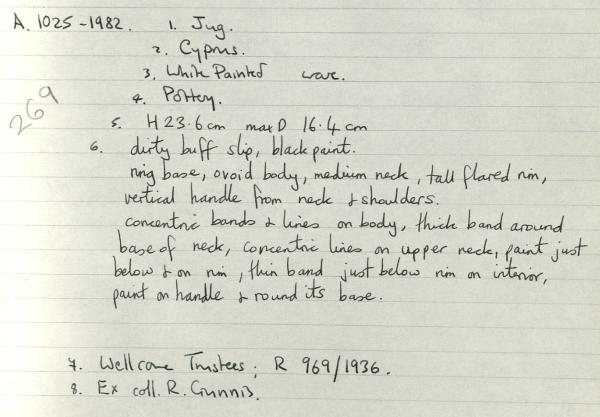 A. 1025-1982. 1. Jug.
2. Cyprus.
3. White Painted ware.
269
4. Pottery.
5. H 23.6cm max D 16.4 cm
6. dirty buff slip, black paint.
ring base, ovoid body, medium neck, tall flared rim,
vertical handle from neck & shoulders.
concentric bands & lines on body, thick band around
base of neck, concentric lines on upper neck, paint just
below & on rim, thin band just below rim on interior,
paint on handle & round its base.
7. Wellcome Trustees; R 969/1936.
8. Ex coll. R. Gunnis.